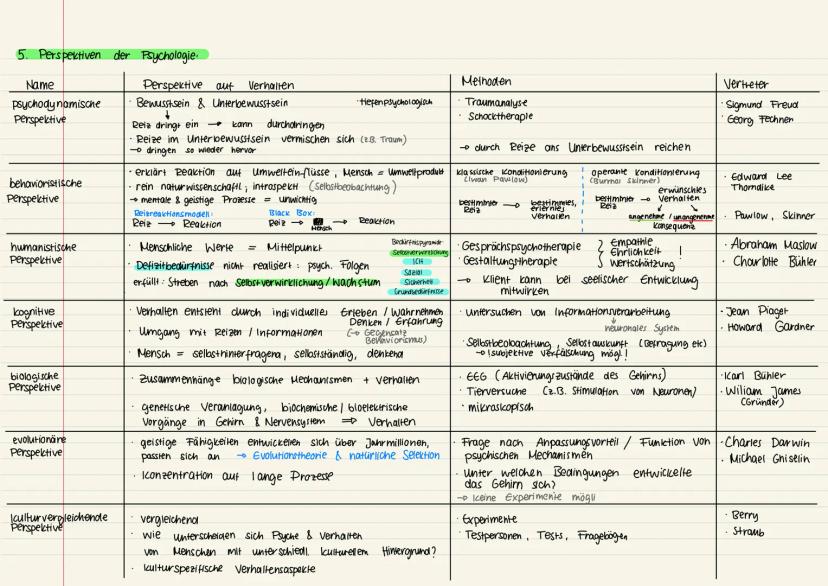 5. Perspektiven der Psychologie.
Name
Perspektive auf Verhalten
Methoden
Vertreter
psychodynamische
Perspektive
· Bewusstsein & Unterbewusstsein
· tiefenpsychologisch
Reiz dringt ein → kann durchdringen
· Reize im Unterbewusstsein vermischen sich (z.B. Traum)
→ dringen so wieder hervor
· Traumanalyse
· Schocktherapie
→ durch Reize ans Unterbewusstsein reichen
· Sigmund Freud
· Georg Fechner
behavioristische
Perspektive
· erklärt Reaktion auf Umwelteinflüsse, Mensch = Umweltprodukt
· rein naturwissenschaftl., introspekt (Selbstbeobachtung)
→ mentale & geistige Prozesse = unwichtig
Reizreaktionsmodell:
Black Box:
Reiz → Reaktion
Reiz → → Reaktion
Mensch
klassische Konditionierung
(Iwan Pawlow)
bestimmter → bestimmtes,
Reiz erlerntes
Verhalten
operante Konditionierung
(Burrhus Skinner)
erwünschtes
bestimmter → Verhalten
Reiz
angenehme / unangenehme
Konsequenz
· Edward Lee
Thorndike
· Pawlow, Skinner
humanistische
Perspektive
· Menschliche Werte = Mittelpunkt
· Defizitbedürfnisse nicht realisiert: psych. Folgen
erfüllt: Streben nach Selbstverwirklichung / Wachstum
Bedürfnispyramide:
Selbstverwirklichung
ICH
Sozial
Sicherheit
Grundbedürfnisse
· Gesprächspsychotherapie
· Gestaltungstherapie
Empathie
Ehrlichkeit !
Wertschätzung
→ Klient kann bei seelischer Entwicklung
mitwirken
· Abraham Maslow
· Charlotte Bühler
kognitive
Perspektive
· Verhalten entsteht durch individuelles Erleben / Wahrnehmen
Denken / Erfahrung
· Umgang mit Reizen / Informationen (→ Gegensatz
Behaviorismus)
· Mensch = selbsthinterfragend, selbstständig, denkend
· untersuchen von Informationsverarbeitung
neuronales System
· Selbstbeobachtung, Selbstauskunft (Befragung etc)
→ subjektive Verfälschung mögl!
· Jean Piaget
· Howard Gardner
biologische
Perspektive
· Zusammenhänge biologische Mechanismen + Verhalten
· genetische Veranlagung, biochemische / bioelektrische
Vorgänge in Gehirn & Nervensystem ⇒ Verhalten
· EEG (Aktivierungszustände des Gehirns)
· Tierversuche (z.B. Stimulation von Neuronen)
· mikroskopisch
· Karl Bühler
· Wiliam James
(Gründer)
evolutionäre
Perspektive
· geistige Fähigkeiten entwickelen sich über Jahrmillionen,
passten sich an → Evolutionstheorie & natürliche Selektion
· Konzentration auf lange Prozesse
· Frage nach Anpassungsvorteil / Funktion von
psychischen Mechanismen
· Unter welchen Bedingungen entwickelte
das Gehirn sich?
→ keine Experimente mögl!
· Charles Darwin
· Michael Ghiselin
kulturvergleichende
Perspektive
· vergleichend
· wie unterscheiden sich Psyche & Verhalten
von Menschen mit unterschiedl. kulturellem Hintergrund?
· kulturspezifische Verhaltensaspekte
· Experimente
· Testpersonen, Tests, Fragebögen
· Berry
· Straub